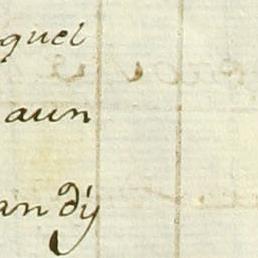 quel
aun
an dij